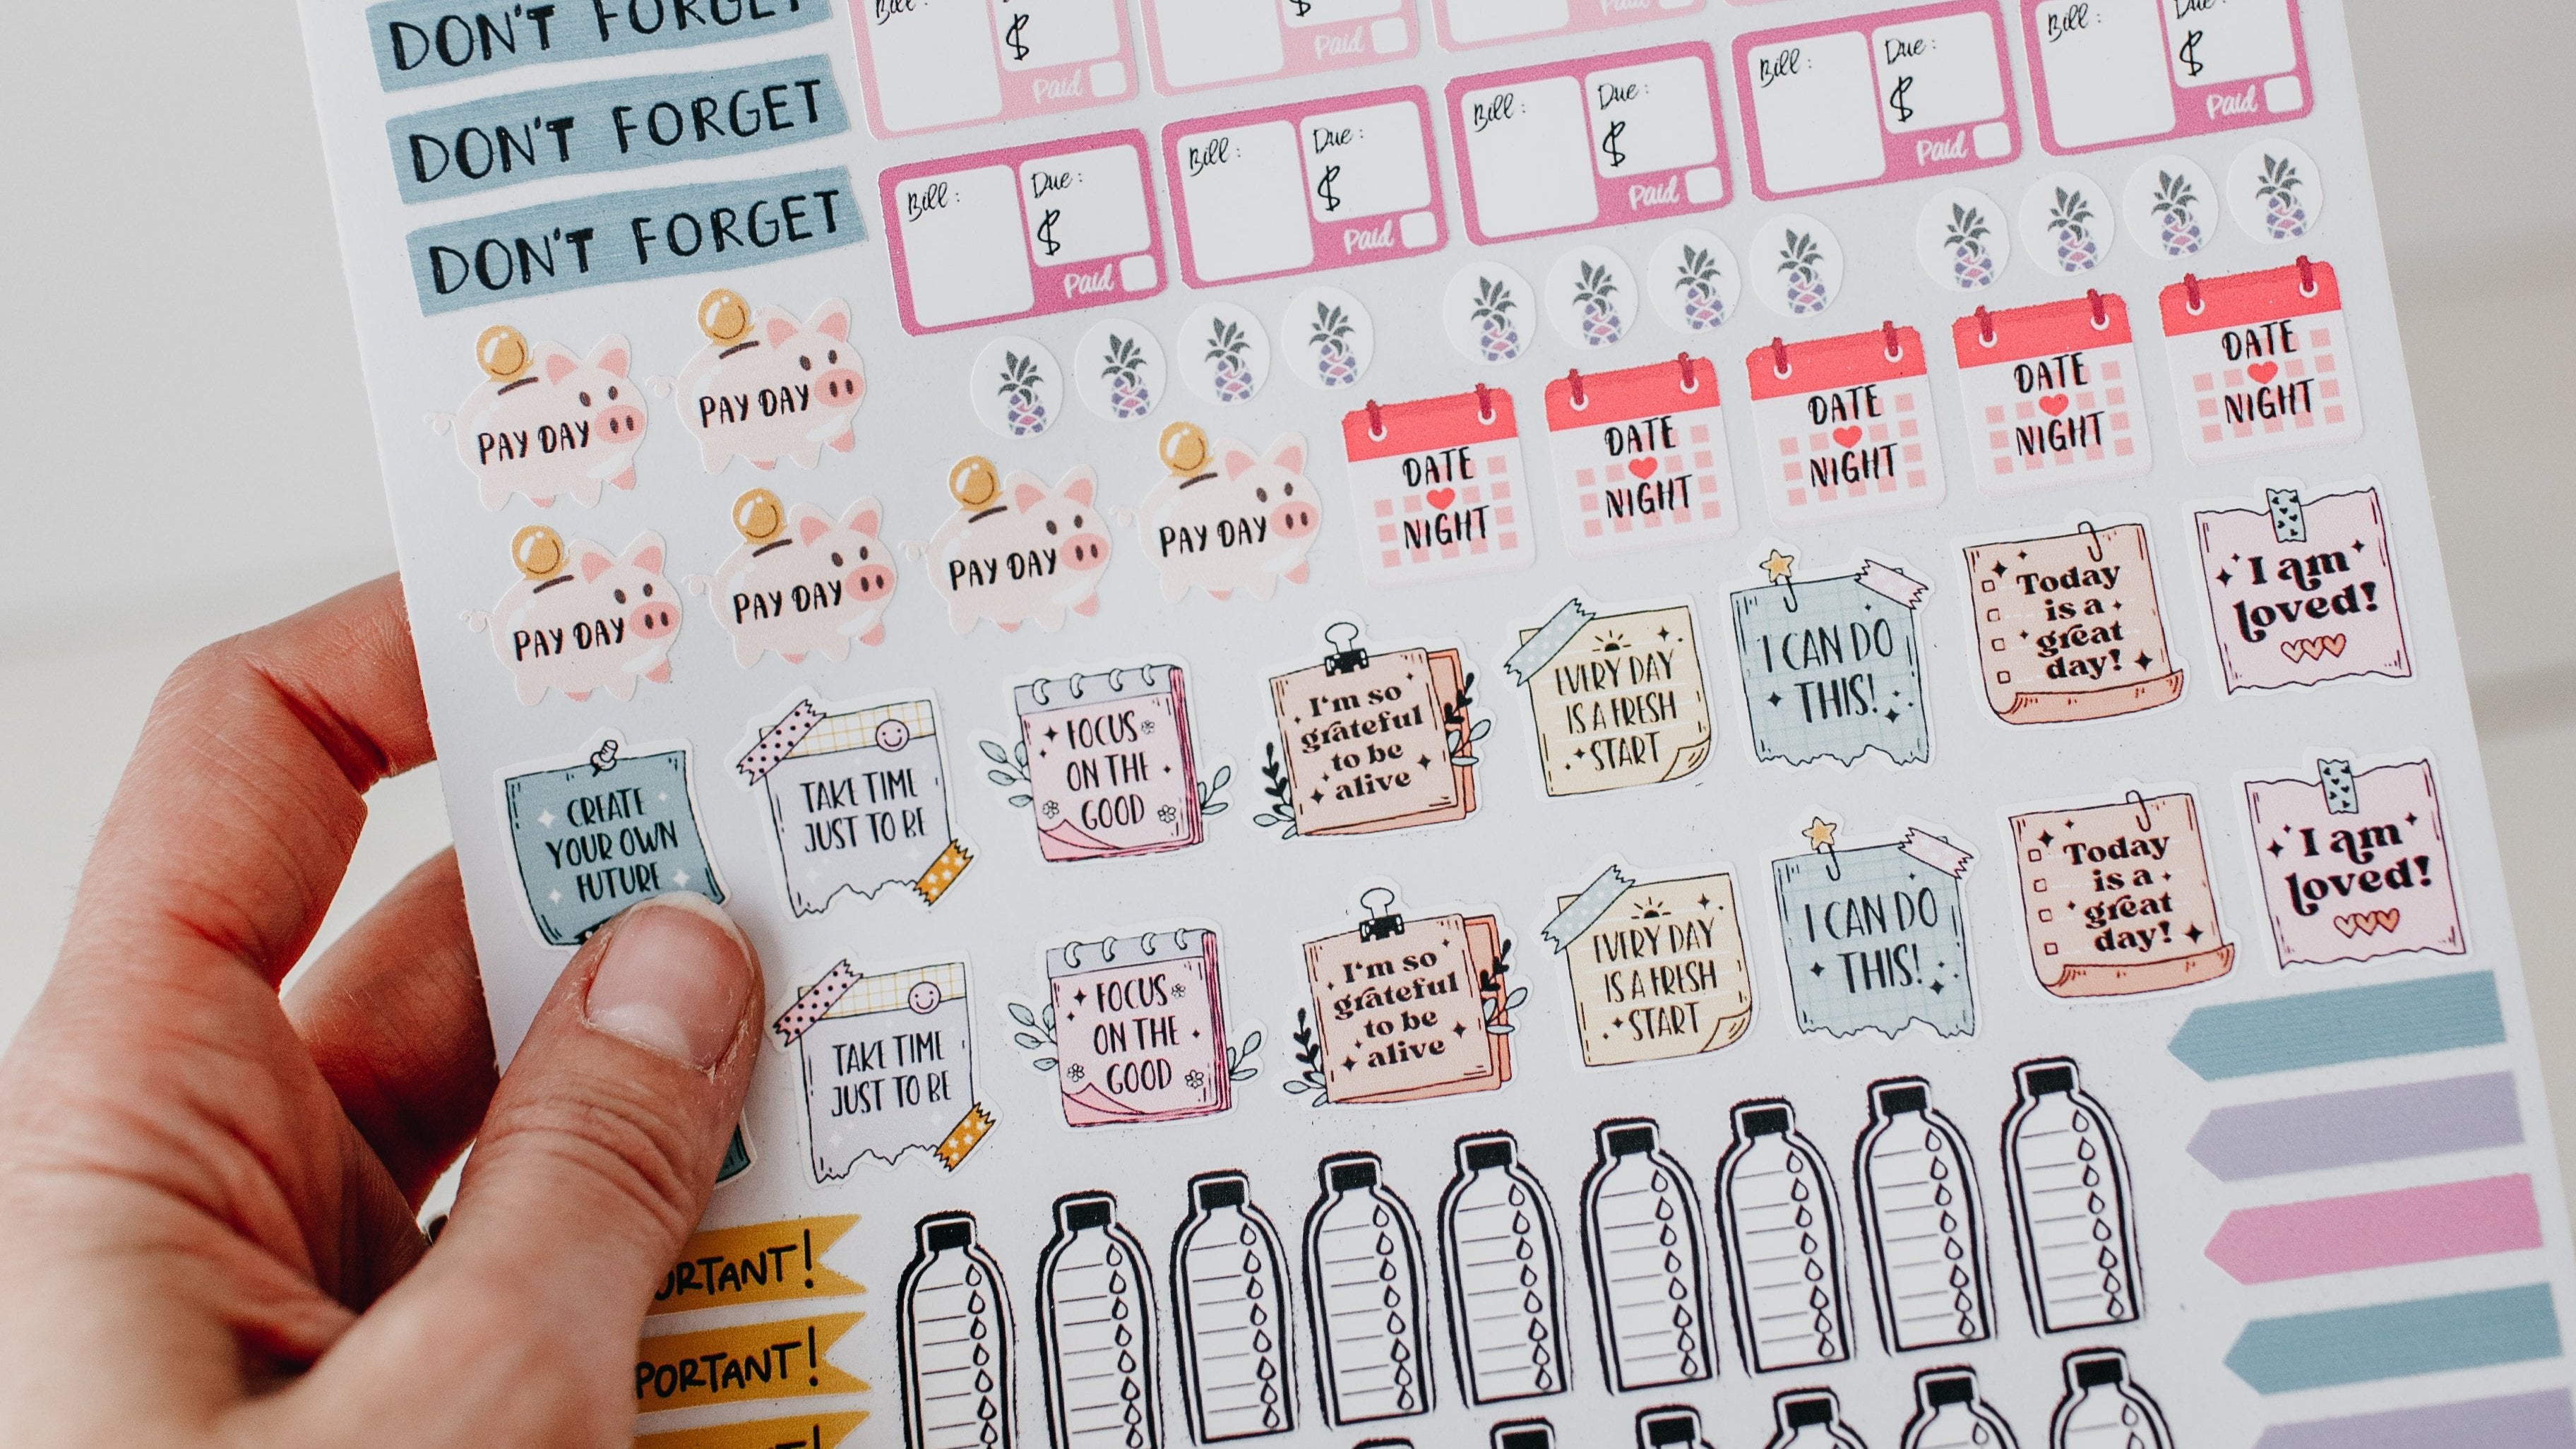 DON'T FORGET
DON'T FORGET
DON'T FORGET
Bill:
$
Paid
$
Paid
Paid
Bill:
Due:
$
Paid
Bill:
Due:
$
Paid
Bill:
Due:
$
Paid
Bill:
Due:
$
Paid
Bill:
Due:
$
Paid
PAY DAY
PAY DAY
PAY DAY
PAY DAY
PAY DAY
PAY DAY
DATE
NIGHT
DATE
NIGHT
DATE
NIGHT
DATE
NIGHT
DATE
NIGHT
CREATE
YOUR OWN
FUTURE
TAKE TIME
JUST TO BE
FOCUS
ON THE
GOOD
I'm so
grateful
to be
alive
EVERY DAY
IS A FRESH
START
I CAN DO
THIS!
Today
is a
great
day!
I am
loved!
TAKE TIME
JUST TO BE
FOCUS
ON THE
GOOD
I'm so
grateful
to be
alive
EVERY DAY
IS A FRESH
START
I CAN DO
THIS!
Today
is a
great
day!
I am
loved!
ORTANT!
PORTANT!